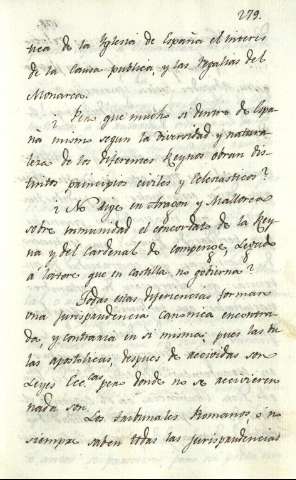 279.
tica de la Iglesia de España el interes
de la causa publica, y las Regalias del
Monarca.
¿ Pero que mucho si dentro de Espa
ña mismo segun la diversidad y natura
leza de los diferentes Reynos obran dis
tintos principios civiles y Eclesiasticos?
¿ No rige en Aragon y Mallorca
sobre inmunidad el concordato de la Rey
na y del Cardenal de Comenge, Legado
á latere que en Castilla no gobierna?
Todas estas diferencias forman
una jurisprudencia canonica encontra
da, y contraria en si misma, pues las bu
las apostolicas, despues de recividas son
Leyes Ecc.cas pero donde no se recivieren
nada son.
Los tribunales Romanos, ó no
siempre saben todas las jurisprudencias